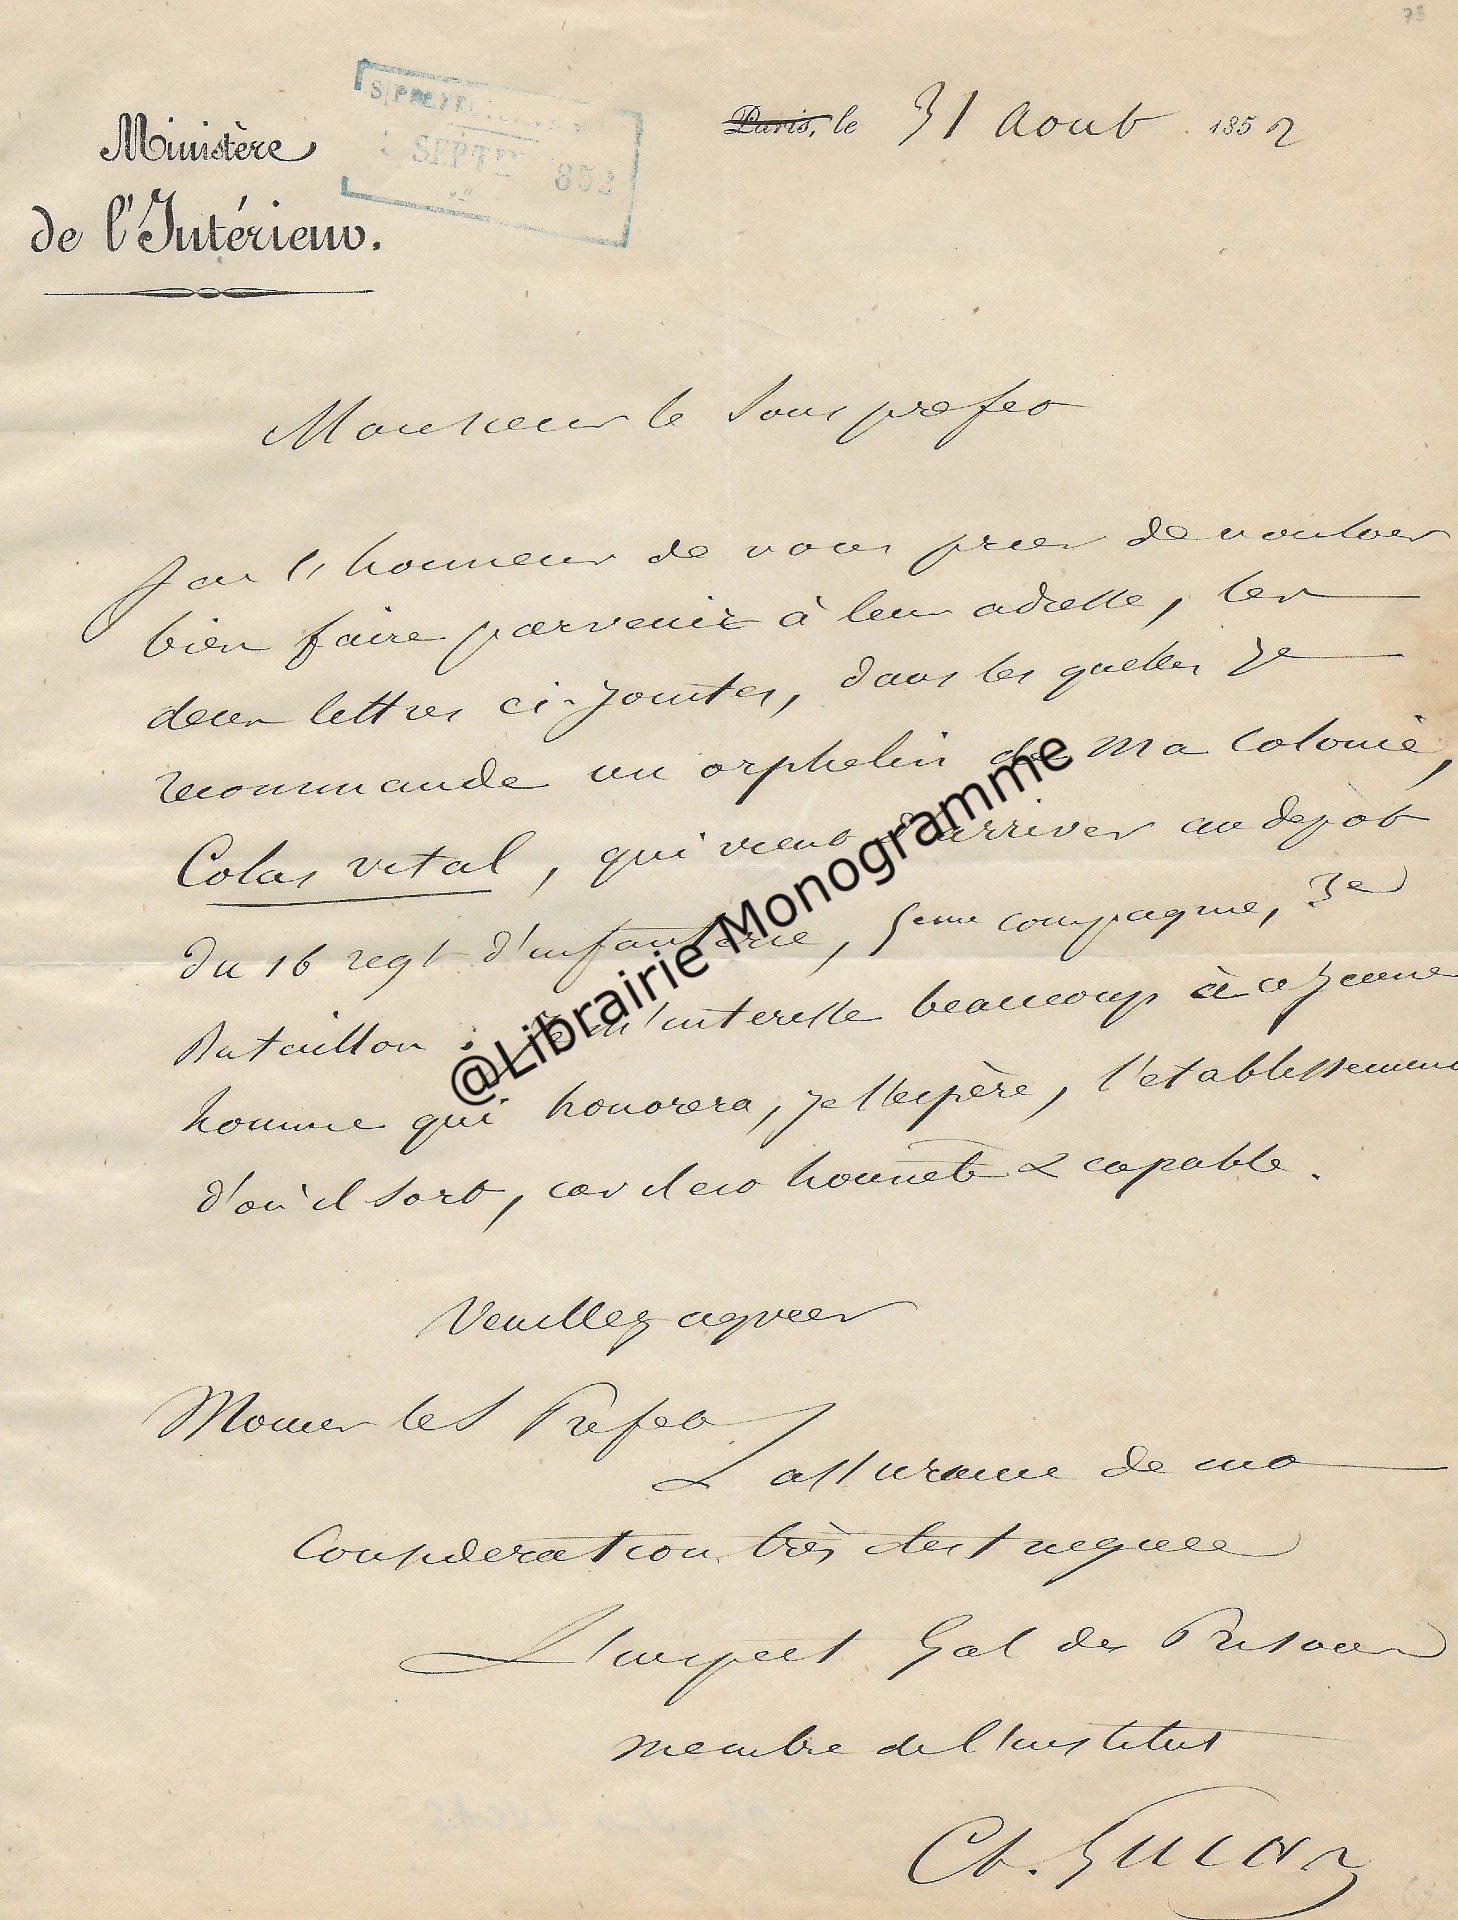 73
Ministère
de l'Intérieur.
SEPTE 852
Paris, le 31 Aout 1852
Monsieur le Sous prefet
J'ai l'honneur de vous prier de vouloir
bien faire parvenir à leur adresse, les
deux lettres ci-jointes, dans les quelles je
recommande un orphelin de ma colonie,
Colas vital, qui vient d'arriver au depôt
du 16 regt d'infanterie, 5eme compagnie, 3e
Bataillon : je m'interesse beaucoup à ce jeune
homme qui honorera, je l'espère, l'etablissement
d'où il sort, car il est honnête & capable.
Veuillez agreer
Monsieur le S Prefet
L'assurance de ma
Consideration très distinguee
L'inspect Gal des Prisons
membre de l'institut
Ch. Lucas
@Librairie Monogramme